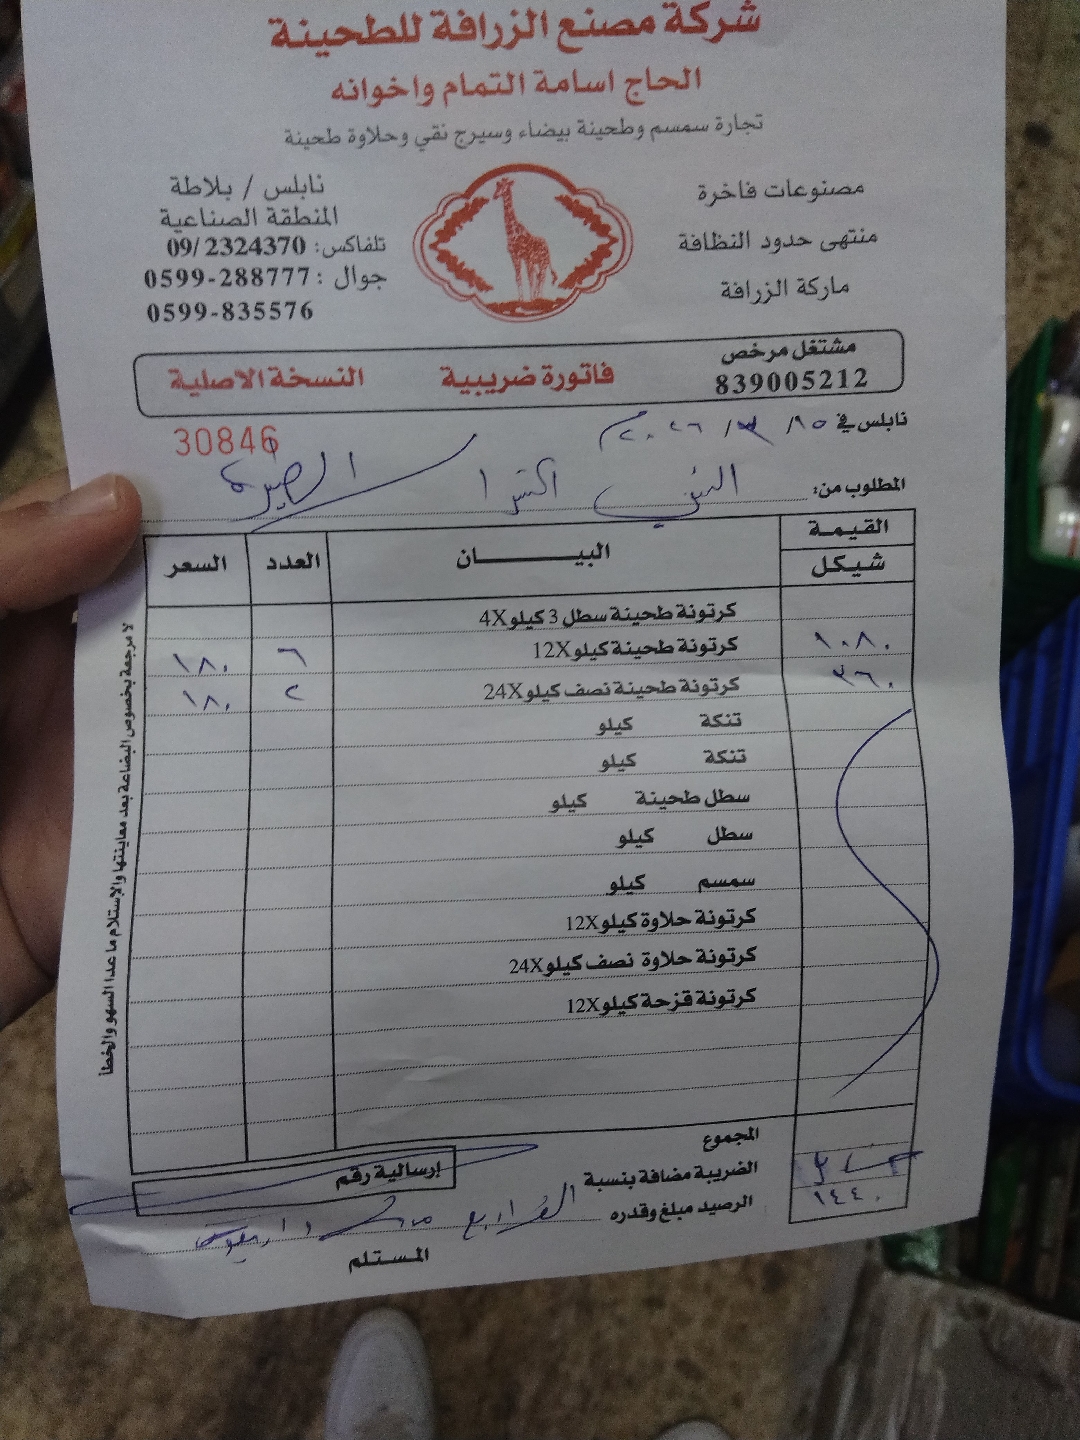 شركة مصنع الزرافة للطحينة
الحاج اسامة التمام واخوانه
تجارة سمسم وطحينة بيضاء وسيرج نقي وحلاوة طحينة
مصنوعات فاخرة
منتهى حدود النظافة
ماركة الزرافة
نابلس / بلاطة
المنطقة الصناعية
تلفاكس: 09/2324370
جوال : 0599-288777
0599-835576
مشتغل مرخص
839005212
فاتورة ضريبية
النسخة الاصلية
نابلس في ١٥/ ٣/ ٢٠٢٦م
30846
المطلوب من: اكسترا
القيمة
شيكل
البيـــــان
العدد
السعر
كرتونة طحينة سطل 3 كيلو 4X
كرتونة طحينة كيلو 12X ٦ ١٨٠ ١٠٨٠
كرتونة طحينة نصف كيلو 24X ٢ ١٨٠ ٣٦٠
تنكة كيلو
تنكة كيلو
سطل طحينة كيلو
سطل كيلو
سمسم كيلو
كرتونة حلاوة كيلو 12X
كرتونة حلاوة نصف كيلو 24X
كرتونة قزحة كيلو 12X
المجموع
الضريبة مضافة بنسبة
الرصيد مبلغ وقدره ١٤٤٠
إرسالية رقم
المستلم
لا مرجعة بخصوص البضاعة بعد معاينتها والإستلام ما عدا السهو والخطأ